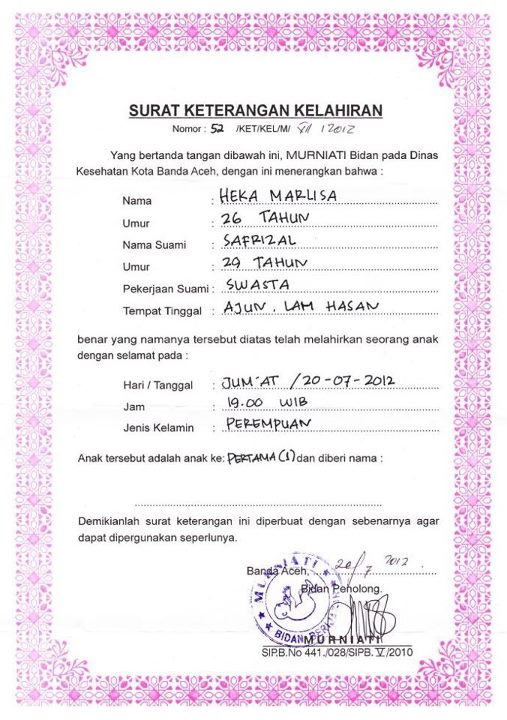 SURAT KETERANGAN KELAHIRAN
Nomor : 52 /KET/KEL/M/ VII / 2012
Yang bertanda tangan dibawah ini, MURNIATI Bidan pada Dinas
Kesehatan Kota Banda Aceh, dengan ini menerangkan bahwa :
Nama : HEKA MARLISA
Umur : 26 TAHUN
Nama Suami : SAFRIZAL
Umur : 29 TAHUN
Pekerjaan Suami : SWASTA
Tempat Tinggal : AJUN, LAM HASAN
benar yang namanya tersebut diatas telah melahirkan seorang anak
dengan selamat pada :
Hari / Tanggal : JUM'AT / 20-07-2012
Jam : 19.00 WIB
Jenis Kelamin : PEREMPUAN
Anak tersebut adalah anak ke: PERTAMA (1) dan diberi nama :
Demikianlah surat keterangan ini diperbuat dengan sebenarnya agar
dapat dipergunakan seperlunya.
Banda Aceh, 20/7 2012
Bidan Penolong.
MURNIATI
BIDAN
MURNIATI
SIP.B.No 441./028/SIPB. V/2010